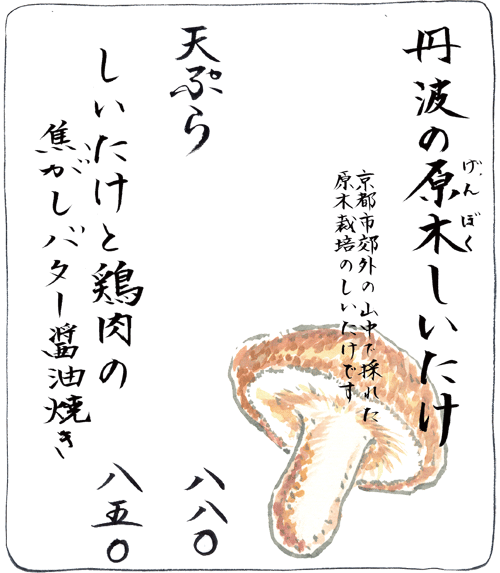 丹波の原木しいたけ
げんぼく
京都市郊外の山中で採れた
原木栽培のしいたけです
天ぷら 八八〇
しいたけと鶏肉の
焦がしバター醤油焼き 八五〇